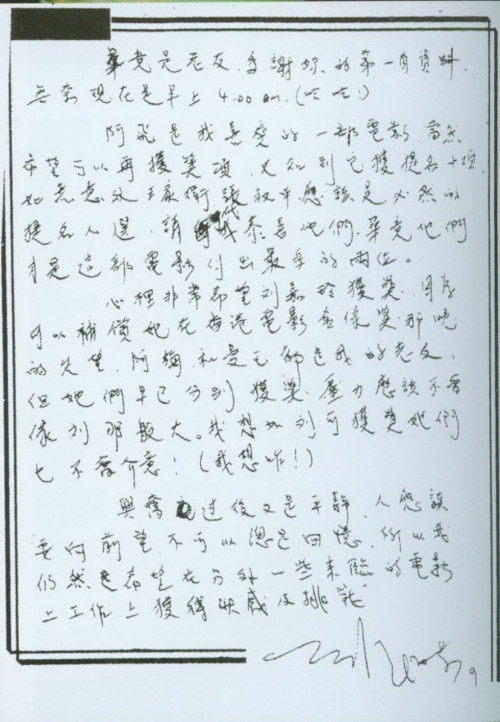 畢竟是老友,多謝妳的第一首資料,
無奈現在是早上 4:00 am.(哈哈!)
阿飛是我喜愛的一部電影,當然
希望可以再獲獎項,又知到它獲提名十項
如無意外 張叔平應該是必然的
提名人選,請代我恭喜他們,畢竟他們
才是這部電影付出最多的兩位。
心裡非常希望劉嘉玲獲獎,因為
可以補償她在香港電影金像獎那晚
的失望,阿梅和曼玉都是我的老友,
但她們早已分別獲獎,壓力應該不會
像刘那般大。我想如刘可獲獎她們
也不會介意!(我想咋!)
興奮过後又是平靜,人應該
要向前望,不可以總是回憶,所以我
仍然是希望在另外一些來臨的電影
上工作上獲得快感及挑戰